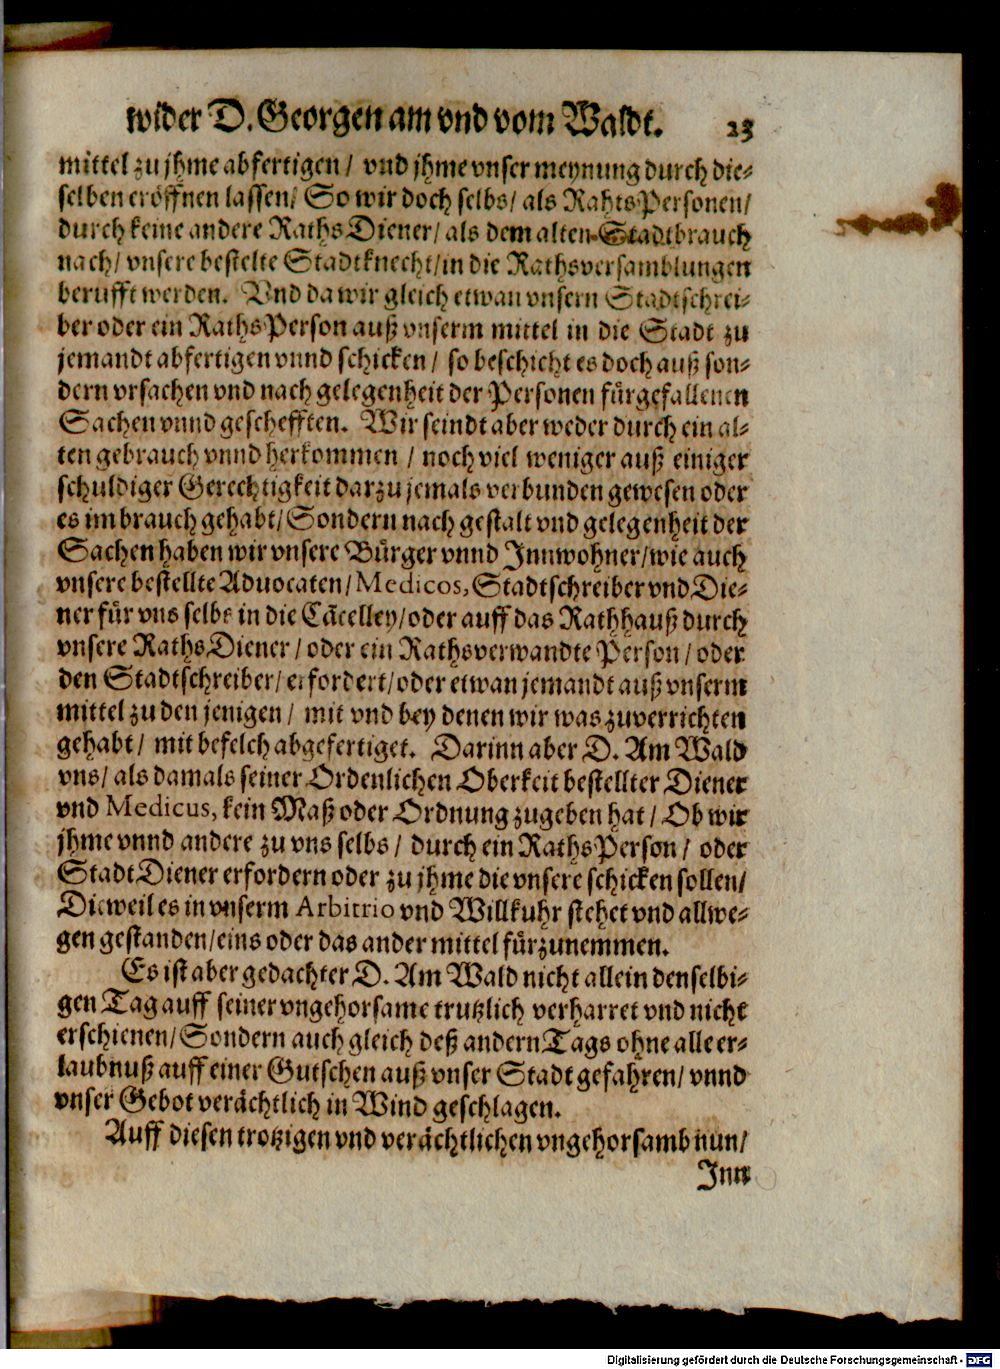 wider D. Georgen am vnd vom Waldt. 23
mittel zu jhme abfertigen / vnd jhme vnser meynung durch die-
selben eröffnen lassen / So wir doch selbs / als RahtsPersonen /
durch keine andere RathsDiener / als dem alten Stadtbrauch
nach / vnsere bestelte Stadtknecht / in die Rathsversamblungen
berufft werden. Vnd da wir gleich etwan vnsern Stadtschrei-
ber oder ein RathsPerson auß vnserm mittel in die Stadt zu
jemandt abfertigen vnnd schicken / so beschicht es doch auß son-
dern vrsachen vnd nach gelegenheit der Personen fürgefallenen
Sachen vnnd geschefften. Wir seindt aber weder durch ein al-
ten gebrauch vnnd herkommen / noch viel weniger auß einiger
schuldiger Gerechtigkeit darzu jemals verbunden gewesen oder
es im brauch gehabt / Sondern nach gestalt vnd gelegenheit der
Sachen haben wir vnsere Bürger vnnd Innwohner / wie auch
vnsere bestellte Aduocaten / Medicos, Stadtschreiber vnd Die-
ner für vns selbs in die Cãcelley / oder auff das Rathhauß durch
vnsere RathsDiener / oder ein Rathsverwandte Person / oder
den Stadtschreiber / erfordert / oder etwan jemandt auß vnserm
mittel zu den jenigen / mit vnd bey denen wir was zuverrichten
gehabt / mit befelch abgefertiget. Darinn aber D. Am Wald
vns / als damals seiner Ordenlichen Oberkeit bestellter Diener
vnd Medicus, kein Maß oder Ordnung zugeben hat / Ob wir
jhme vnnd andere zu vns selbs / durch ein RathsPerson / oder
StadtDiener erfordern oder zu jhme die vnsere schicken sollen /
Dieweil es in vnserm Arbitrio vnd Willkuhr stehet vnd allwe-
gen gestanden / eins oder das ander mittel fürzunemmen.
Es ist aber gedachter D. Am Wald nicht allein denselbi-
gen Tag auff seiner vngehorsame trutzlich verharret vnd nicht
erschienen / Sondern auch gleich deß andern Tags ohne alle er-
laubnuß auff einer Gutschen auß vnser Stadt gefahren / vnnd
vnser Gebot verächtlich in Wind geschlagen.
Auff diesen trotzigen vnd verächtlichen vngehorsamb nun /
Inn
Digitalisierung gefördert durch die Deutsche Forschungsgemeinschaft - DFG